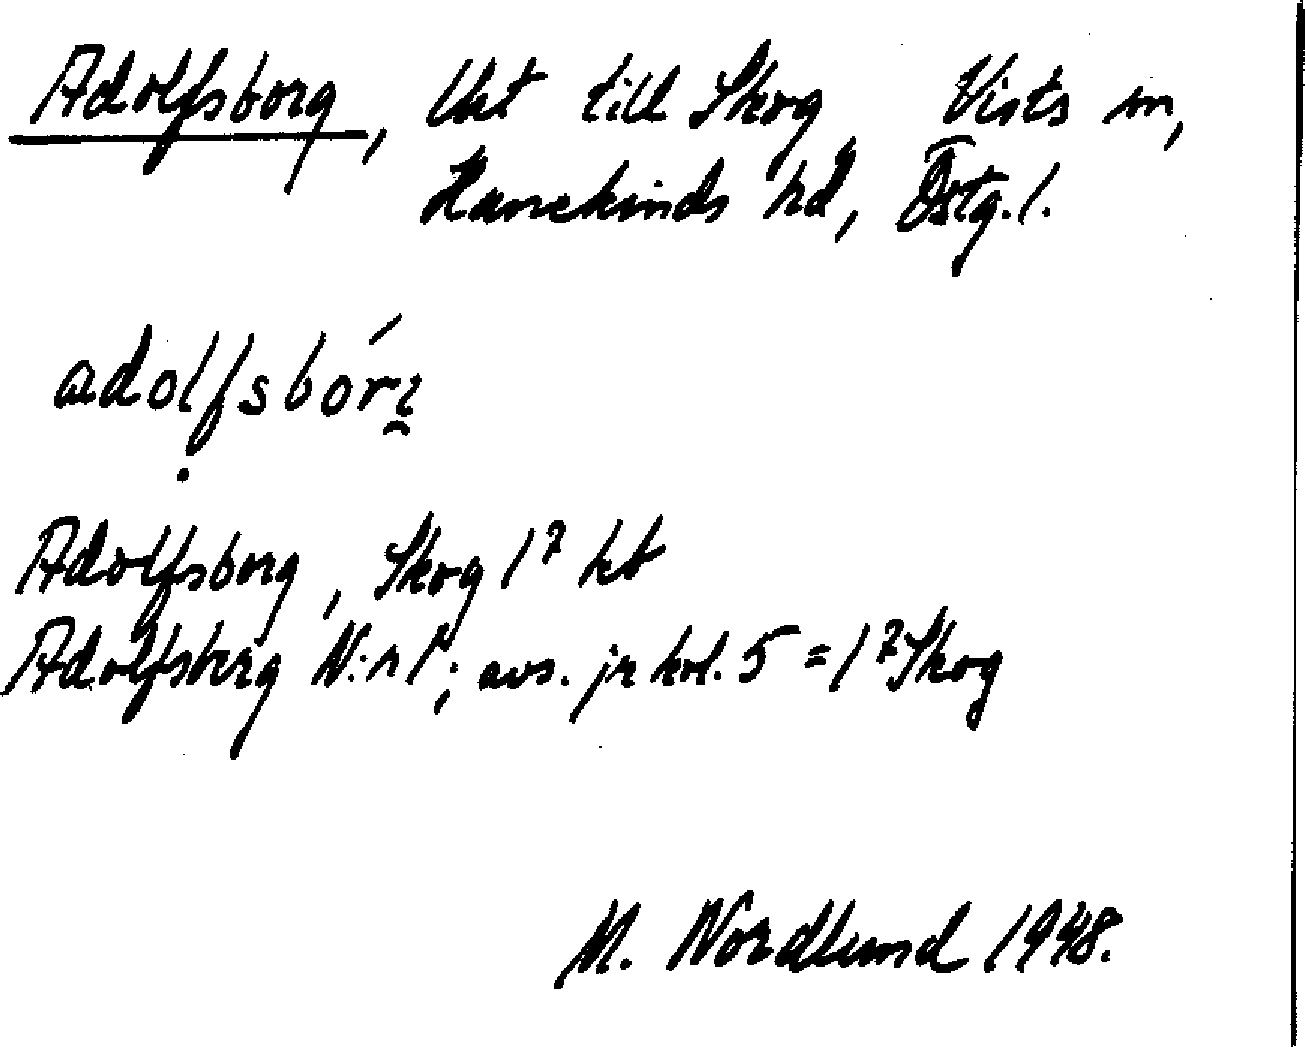 Adolfsborg, Uet till Skog Vists sn,
Hanekinds hd, Östg. l.
adolfsbórı̯
Adolfsborg, Skog 1² kt
Adolfsberg N:r 1; avs. jr kol. 5 = 1² Skog
M. Nordlund 1948.